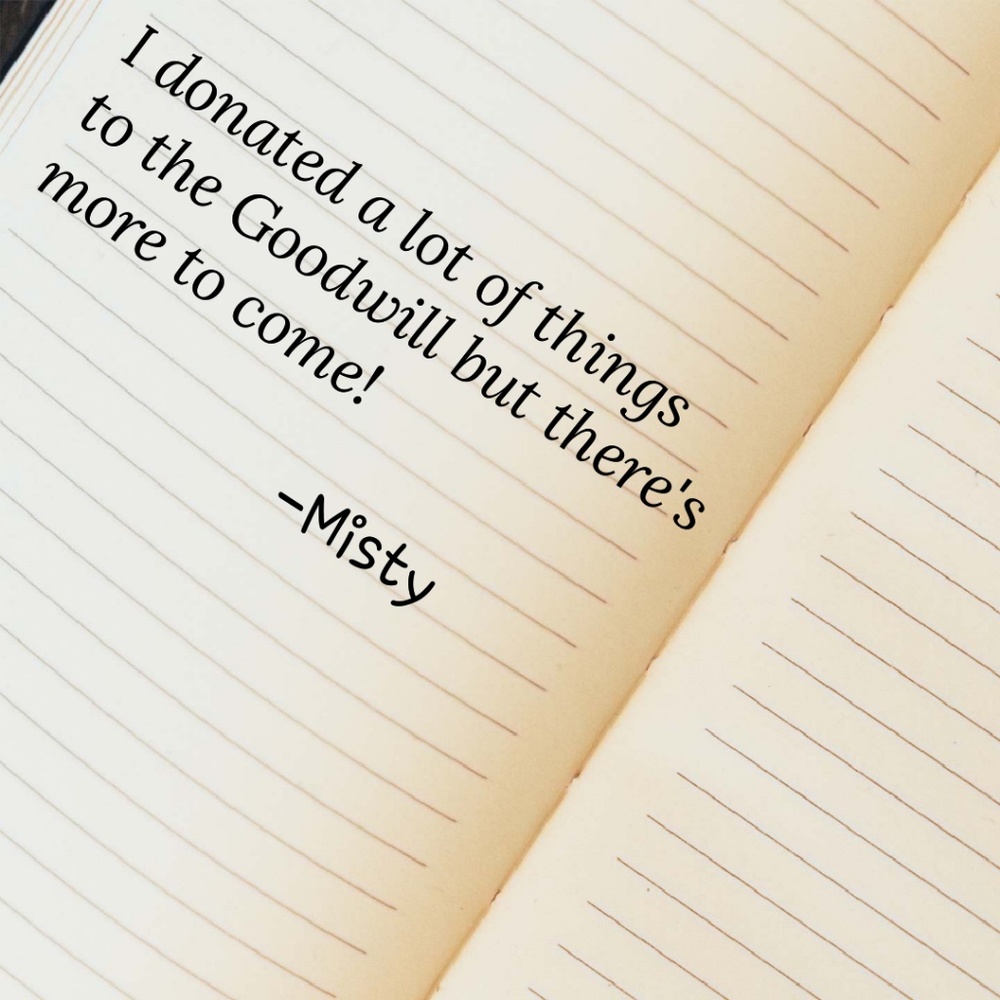 I donated a lot of things
to the Goodwill but there's
more to come!
-Misty